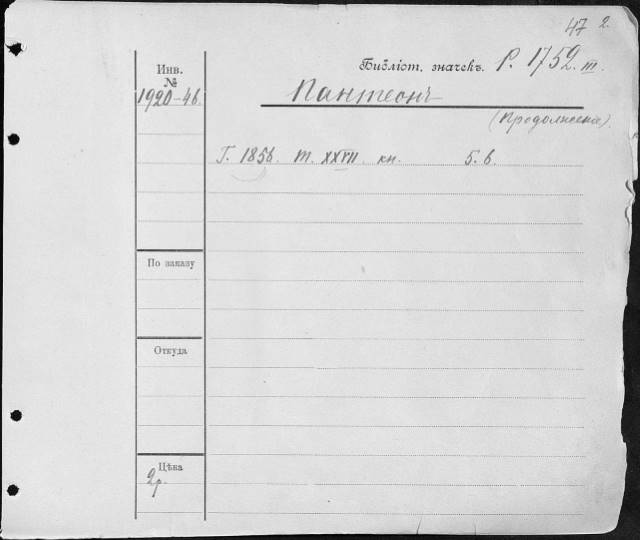 47 2.
Инв.
№
1920-46.
Библіот. значекъ. Р. 1752 III.
Пантеонъ
(Продолжение).
Г. 1856. т. XXVII кн. 5. 6.
По заказу
Откуда
Цѣна
2р.